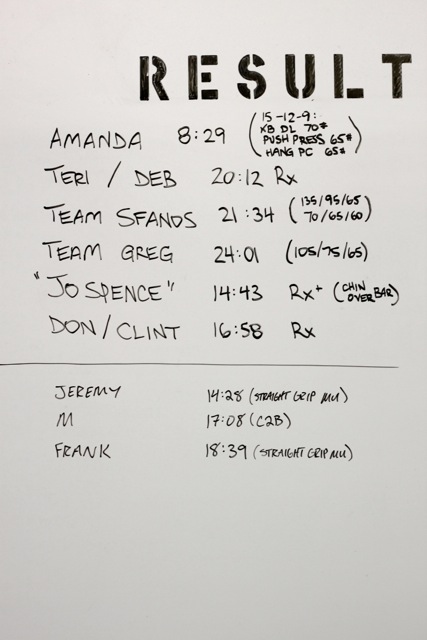 RESULT
AMANDA 8:29 (15-12-9: KB DL 70# PUSH PRESS 65# HANG PC 65#)
TERI / DEB 20:12 Rx
TEAM SFANOS 21:34 (135/95/65 70/65/60)
TEAM GREG 24:01 (105/75/65)
"JO SPENCE" 14:43 Rx+ (CHIN OVER BAR)
DON/CLINT 16:58 Rx
JEREMY 14:28 (STRAIGHT GRIP MU)
M 17:08 (C2B)
FRANK 18:39 (STRAIGHT GRIP MU)